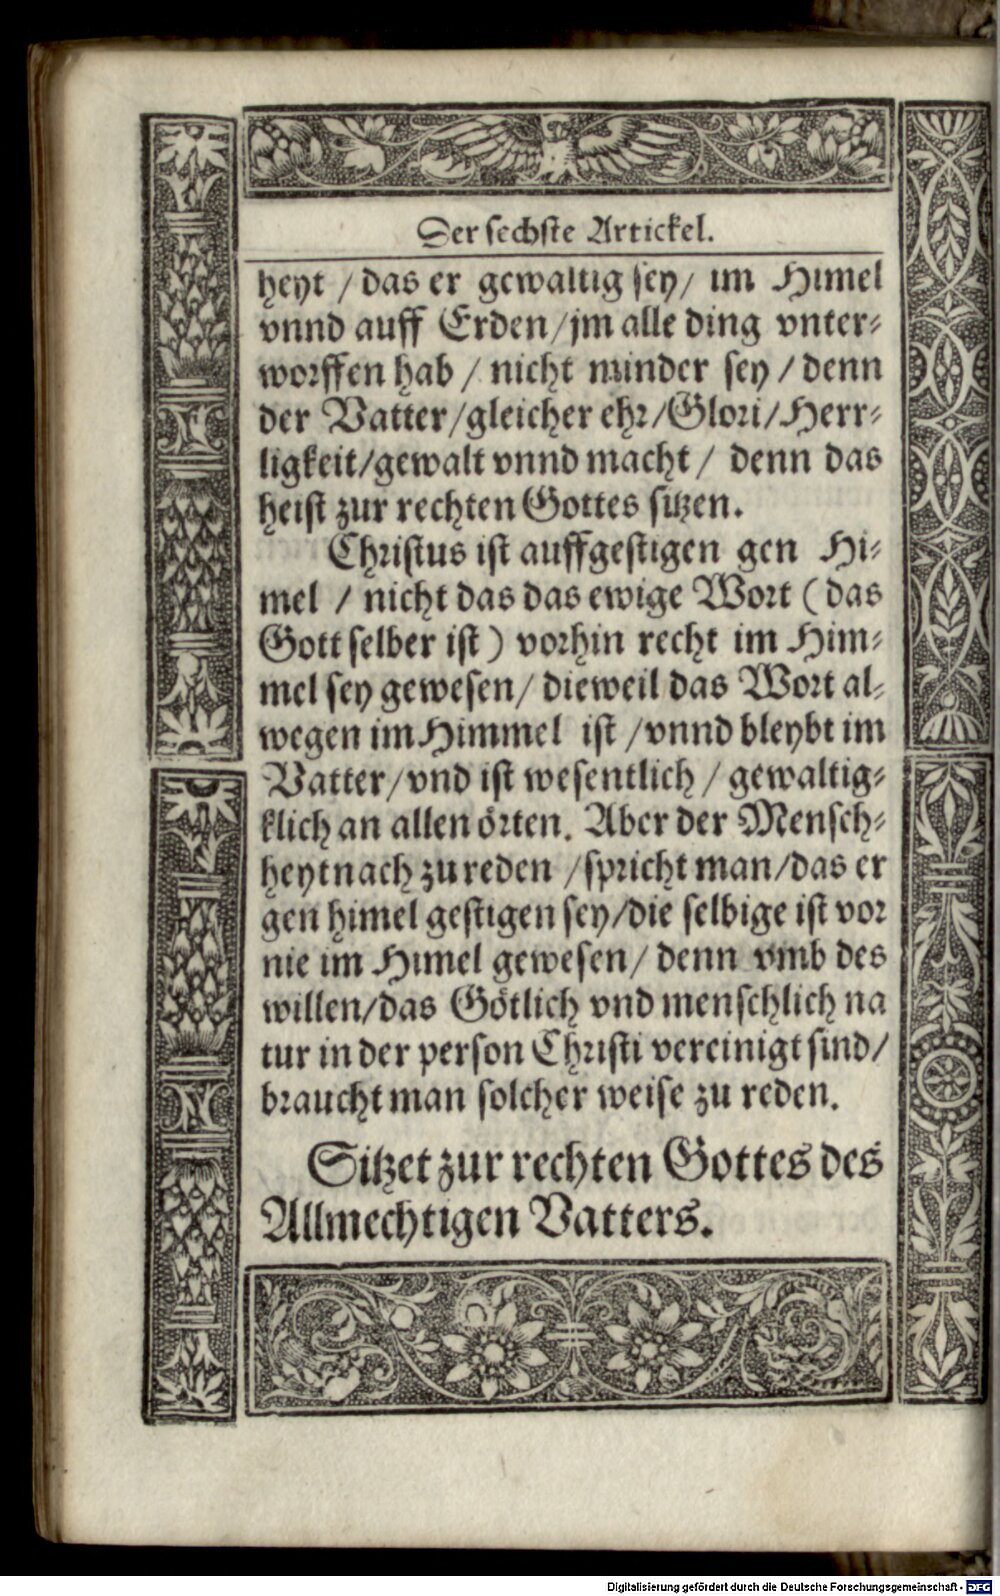 Der sechste Artickel.
heyt / das er gewaltig sey / im Himel
vnnd auff Erden / jm alle ding vnter⸗
worffen hab / nicht minder sey / denn
der Vatter / gleicher ehr / Glori / Herr⸗
ligkeit / gewalt vnnd macht / denn das
heist zur rechten Gottes sitzen.
Christus ist auffgestigen gen Hi⸗
mel / nicht das das ewige Wort ( das
Gott selber ist ) vorhin recht im Him⸗
mel sey gewesen / dieweil das Wort al⸗
wegen im Himmel ist / vnnd bleybt im
Vatter / vnd ist wesentlich / gewaltig⸗
klich an allen örten. Aber der Mensch⸗
heyt nach zu reden / spricht man / das er
gen himel gestigen sey / die selbige ist vor
nie im Himel gewesen / denn vmb des
willen / das Götlich vnd menschlich na
tur in der person Christi vereinigt sind /
braucht man solcher weise zu reden.
Sitzet zur rechten Gottes des
Allmechtigen Vatters.
Digitalisierung gefördert durch die Deutsche Forschungsgemeinschaft - DFG